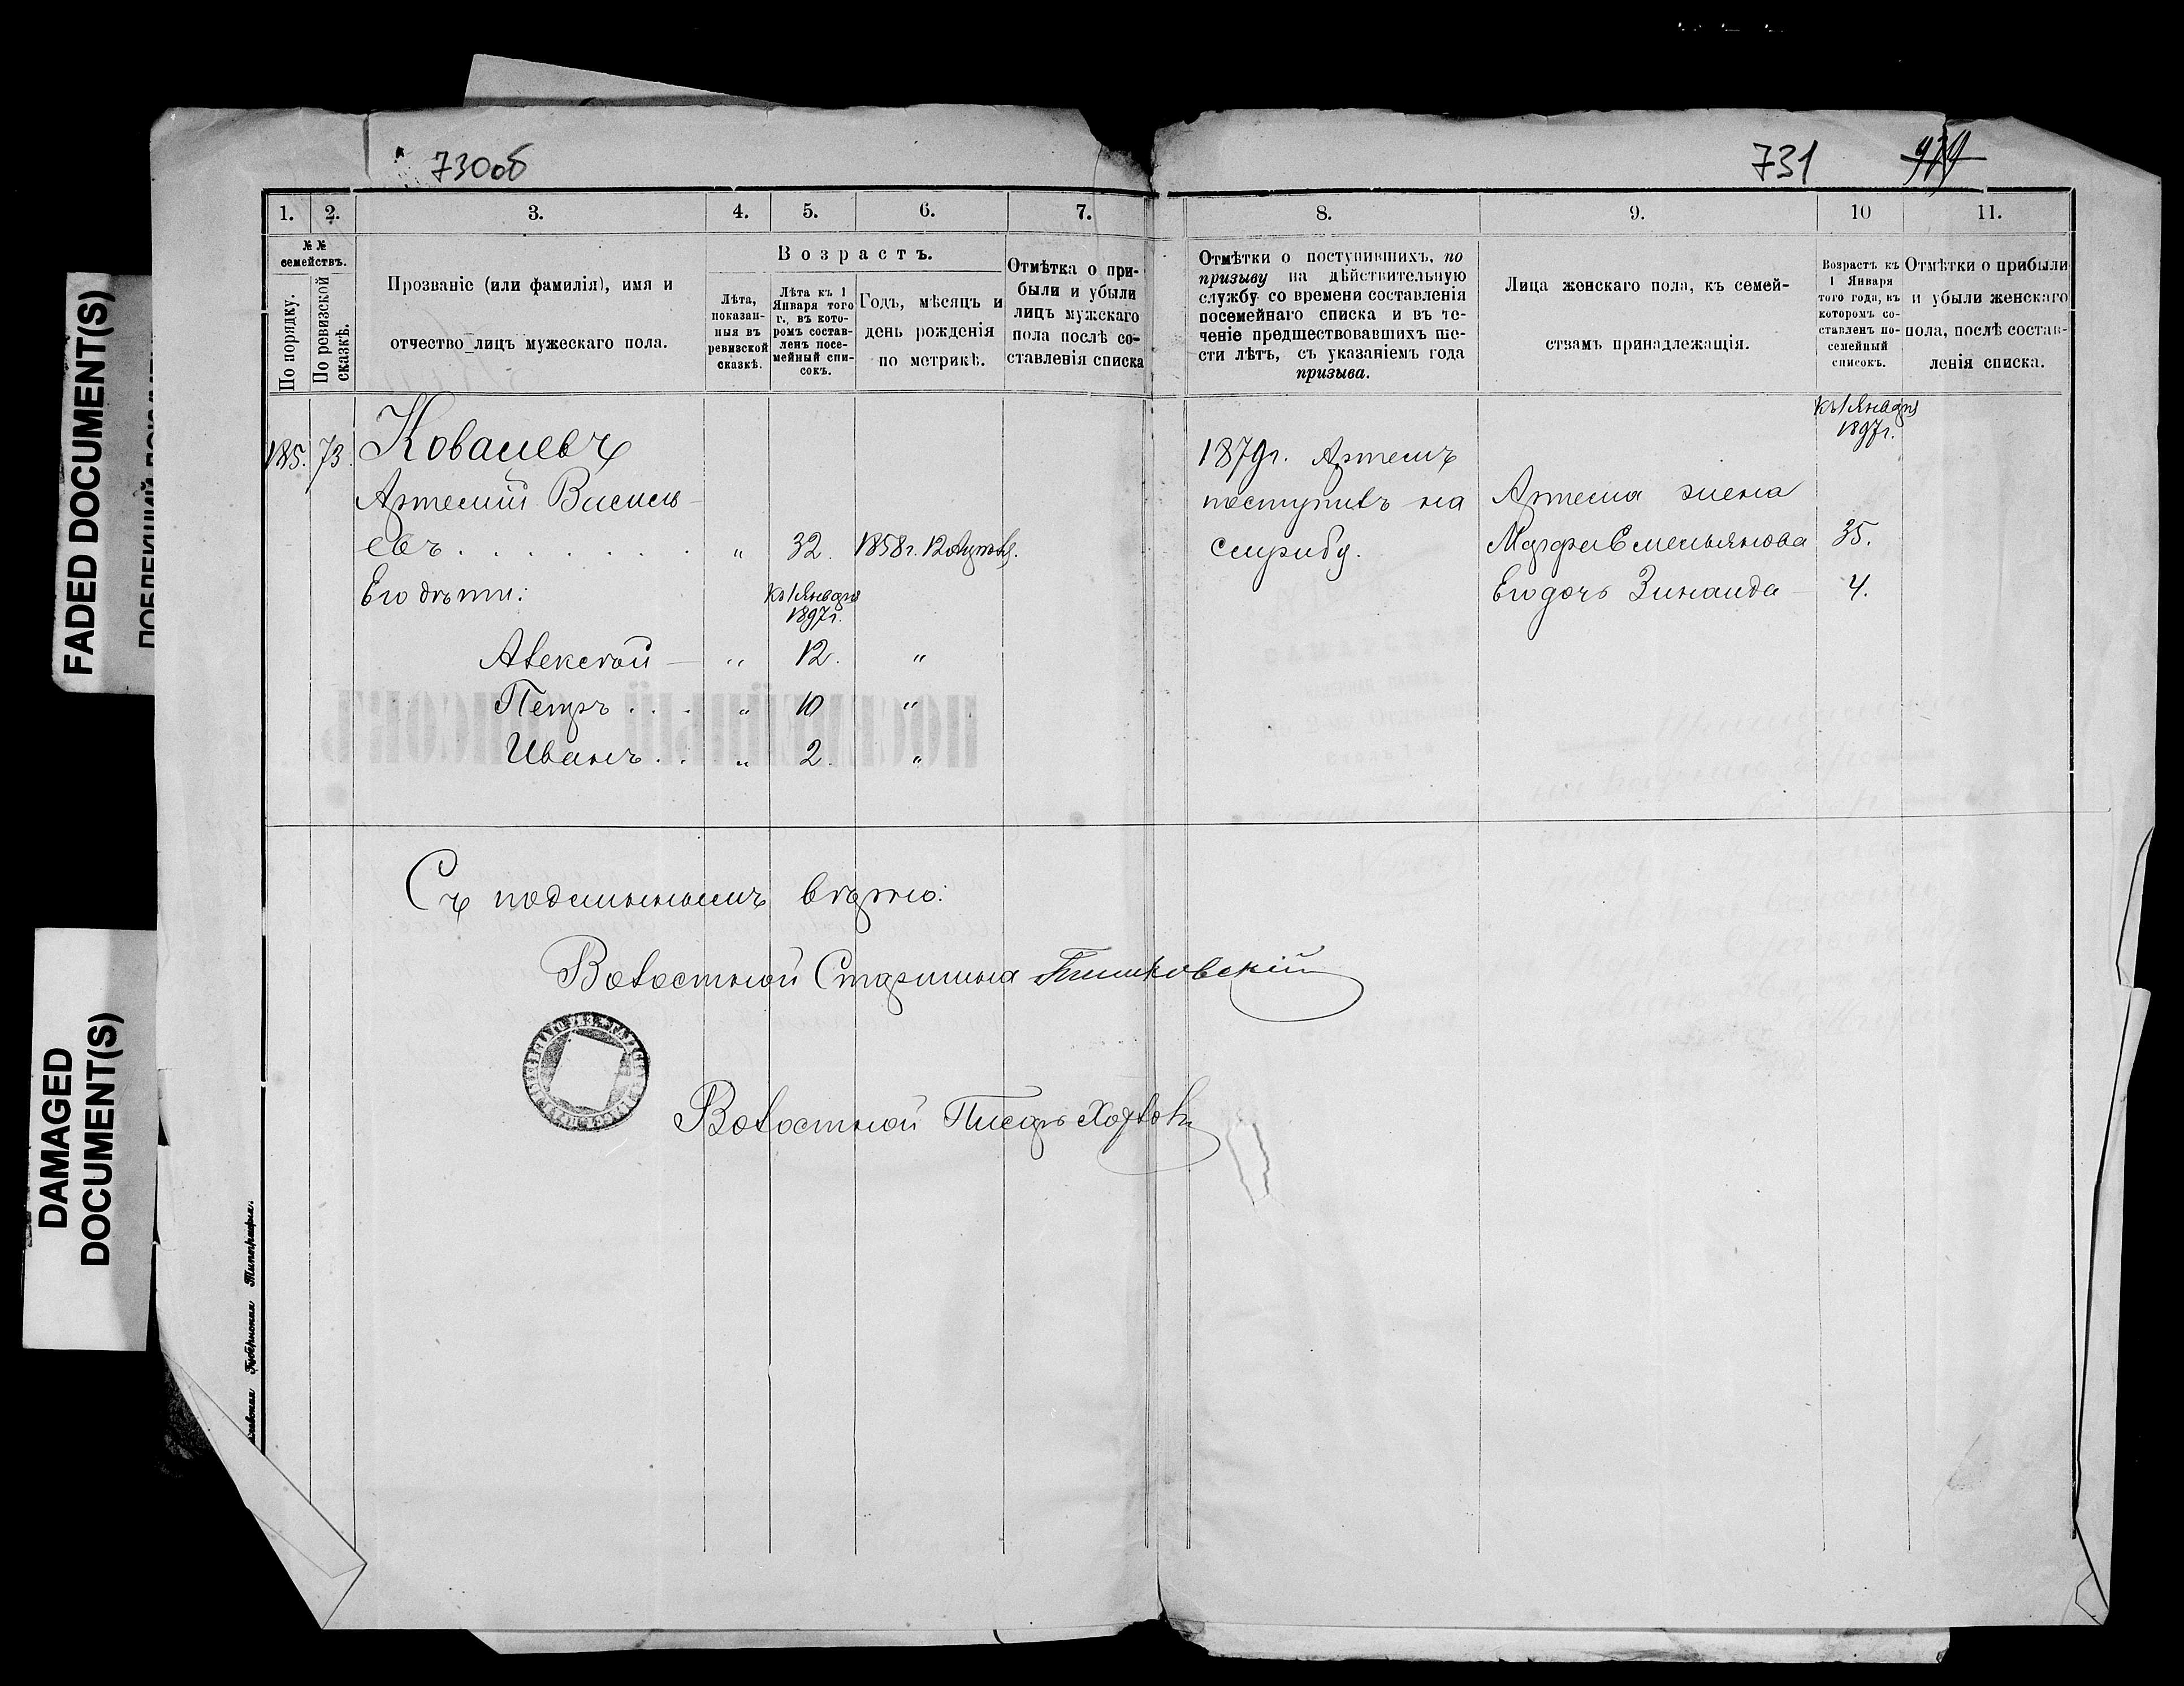 730об
731
FADED DOCUMENT(S)
DAMAGED
DOCUMENT(S)
1. 2. 3. 4. 5. 6. 7. 8. 9. 10 11.
№ №
семействъ.
По порядку.
По ревизской
сказкѣ.
Прозваніе (или фамилія), имя и
отчество лицъ мужескаго пола.
Возрастъ.
Лѣта,
показан-
ныя въ
ревизской
сказкѣ.
Лѣта къ 1
Января того
г., въ кото-
ромъ состав-
ленъ посе-
мейный спи-
сокъ.
Годъ, мѣсяцъ и
день рожденія
по метрикѣ.
Отмѣтка о при-
были и убыли
лицъ мужскаго
пола послѣ со-
ставленія списка
Отмѣтки о поступившихъ, по
призыву на дѣйствительную
службу со времени составленія
посемейнаго списка и въ те-
ченіе предшествовавшихъ ше-
сти лѣтъ, съ указаніемъ года
призыва.
Лица женскаго пола, къ семей-
ствамъ принадлежащія.
Возрастъ къ
1 Января
того года, въ
которомъ со-
ставленъ по-
семейный
списокъ.
Отмѣтки о прибыли
и убыли женскаго
пола, послѣ состав-
ленія списка.
185. 73. Ковалевъ
Артемій Василь-
евъ . . . . . . . „ 32. 1858г. 12
Его дѣти: къ 1 Января
1897г.
Алексѣй — „ 12. „
Петръ . . . „ 10 „
Иванъ . . „ 2. „
1879г. Артемъ
поступилъ на
службу.
къ 1 Января
1897г.
Артема жена
Марфа Емельянова 35.
Его дочь Зинаида — 4.
Съ подлиннымъ вѣрно:
Волостной Старшина
Волостной Писарь
Губернская Типографія.